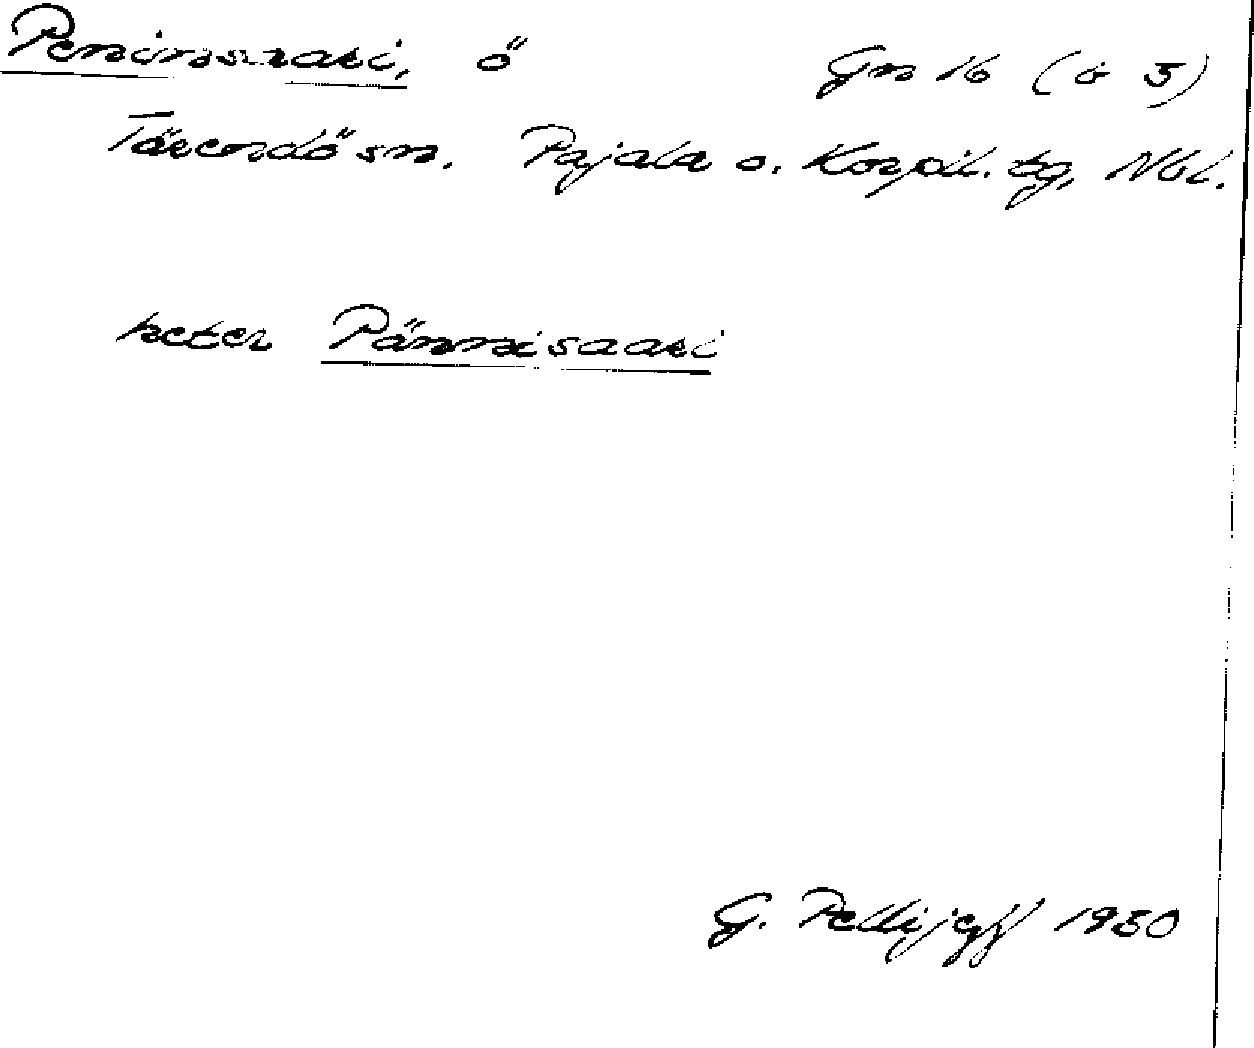 Peninsaari, ö Gn 16 (ö 5)
Tärendö sn. Pajala o. Korpil. tg, Nbl.
heter Pännisaari
G. Pellijeff 1950